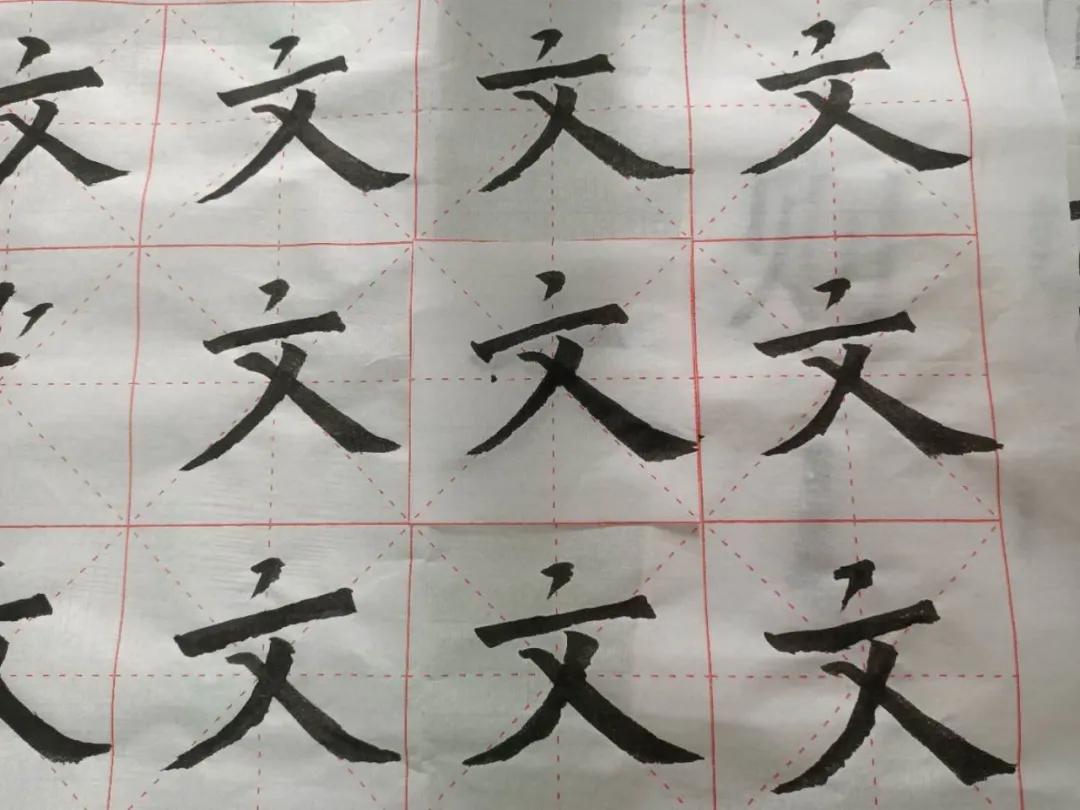 文文文文
文文文
文文文文